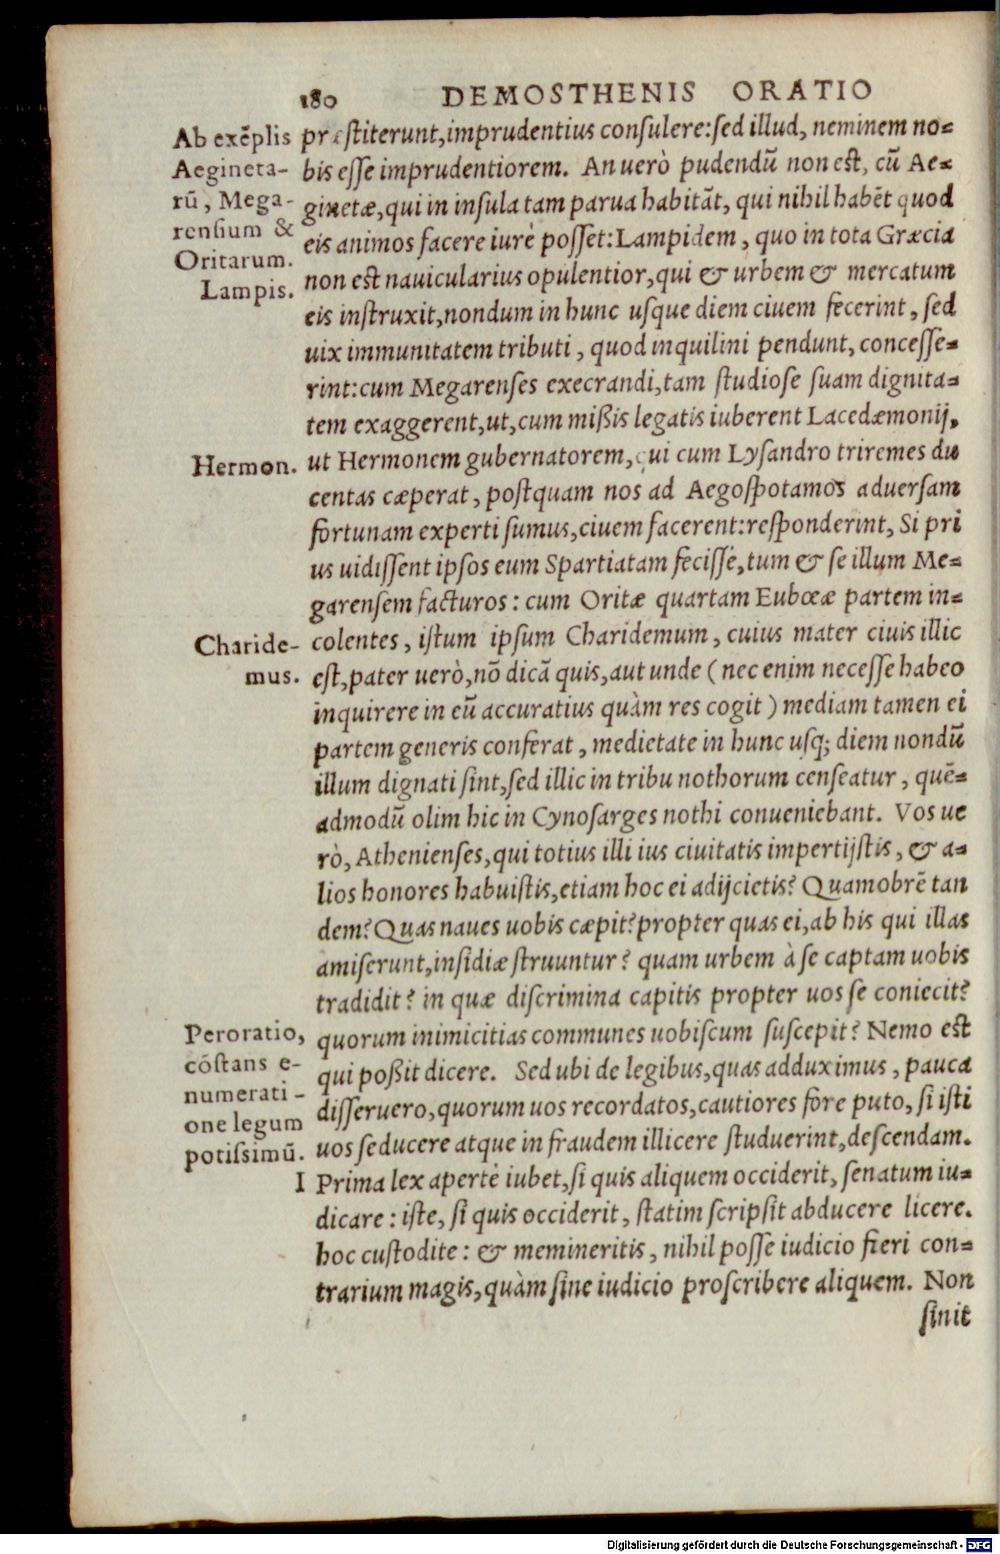 180 DEMOSTHENIS ORATIO
Ab exẽplis
Aegineta-
rũ, Mega-
rensium &
Oritarum.
Lampis.
præstiterunt, imprudentius consulere: sed illud, neminem no-
bis esse imprudentiorem. An uerò pudendũ non est, cũ Ae-
ginetæ, qui in insula tam parua habitãt, qui nihil habẽt quod
eis animos facere iurè posset: Lampidem, quo in tota Græcia
non est nauicularius opulentior, qui & urbem & mercatum
eis instruxit, nondum in hunc usque diem ciuem fecerint, sed
uix immunitatem tributi, quod inquilini pendunt, concesse-
rint: cum Megarenses execrandi, tam studiose suam dignita-
tem exaggerent, ut, cum mißis legatis iuberent Lacedæmonij,
Hermon.
ut Hermonem gubernatorem, qui cum Lysandro triremes du
centas cæperat, postquam nos ad Aegospotamos aduersam
fortunam experti sumus, ciuem facerent: responderint, Si pri
us uidissent ipsos eum Spartiatam fecisse, tum & se illum Me-
garensem facturos: cum Oritæ quartam Eubœæ partem in-
Charide-
mus.
colentes, istum ipsum Charidemum, cuius mater ciuis illic
est, pater uerò, nõ dicã quis, aut unde (nec enim necesse habeo
inquirere in eũ accuratius quàm res cogit) mediam tamen ei
partem generis conferat, medietate in hunc usq; diem nondũ
illum dignati sint, sed illic in tribu nothorum censeatur, quẽ-
admodũ olim hic in Cynosarges nothi conueniebant. Vos ue
rò, Athenienses, qui totius illi ius ciuitatis impertijstis, & a-
lios honores habuistis, etiam hoc ei adijcietis? Quamobrẽ tan
dem? Quas naues uobis cæpit? propter quas ei, ab his qui illas
amiserunt, insidiæ struuntur? quam urbem à se captam uobis
tradidit? in quæ discrimina capitis propter uos se coniecit?
Peroratio,
cõstans e-
numerati-
one legum
potissimũ.
quorum inimicitias communes uobiscum suscepit? Nemo est
qui poßit dicere. Sed ubi de legibus, quas adduximus, pauca
disseruero, quorum uos recordatos, cautiores fore puto, si isti
uos seducere atque in fraudem illicere studuerint, descendam.
I Prima lex apertè iubet, si quis aliquem occiderit, senatum iu-
dicare: iste, si quis occiderit, statim scripsit abducere licere.
hoc custodite: & memineritis, nihil posse iudicio fieri con-
trarium magis, quàm sine iudicio proscribere aliquem. Non
sinit
Digitalisierung gefördert durch die Deutsche Forschungsgemeinschaft - DFG